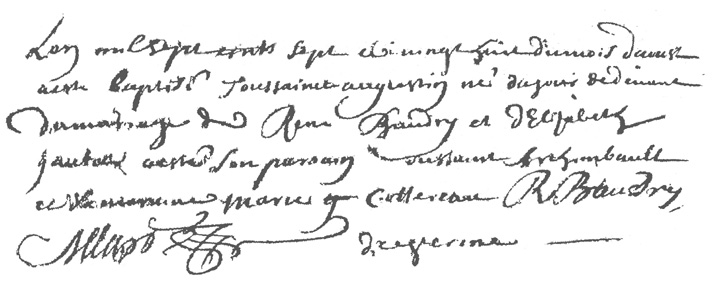 Lan mil sept cents sept et vingt huit du mois daoust
a esté baptisé Toussainct augustin né du jour de devant
du mariage de René Baudry et d'Elizabeth
a esté son parain Toussaint Archambault
et la maraine Marie Cottereau R. Baudry
Allard